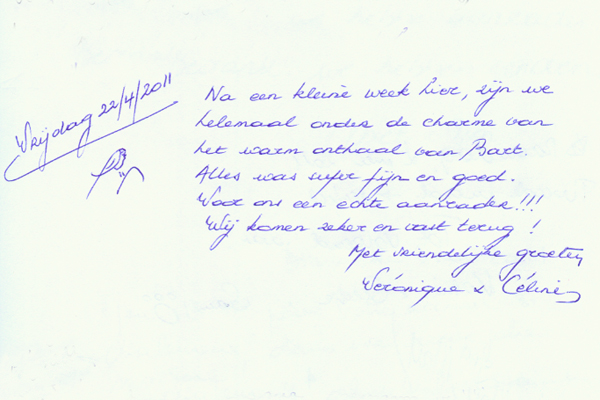 Vrijdag 22/4/2011
Na een kleine week hier, zijn we
helemaal onder de charme van
het warm onthaal van Bart.
Alles was super fijn en goed.
Voor ons een echte aanrader!!!
Wij komen zeker en vast terug!
Met vriendelijke groeten
Véronique & Céline